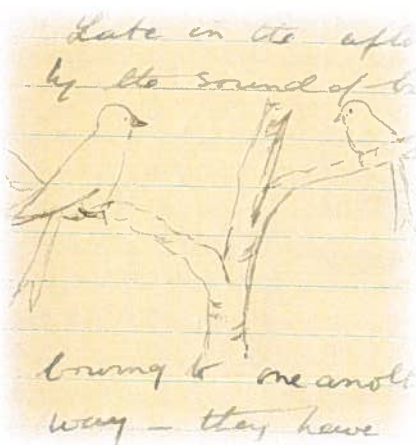 Late in the afte
by the sound of b
bowing to one anoth
way – they have